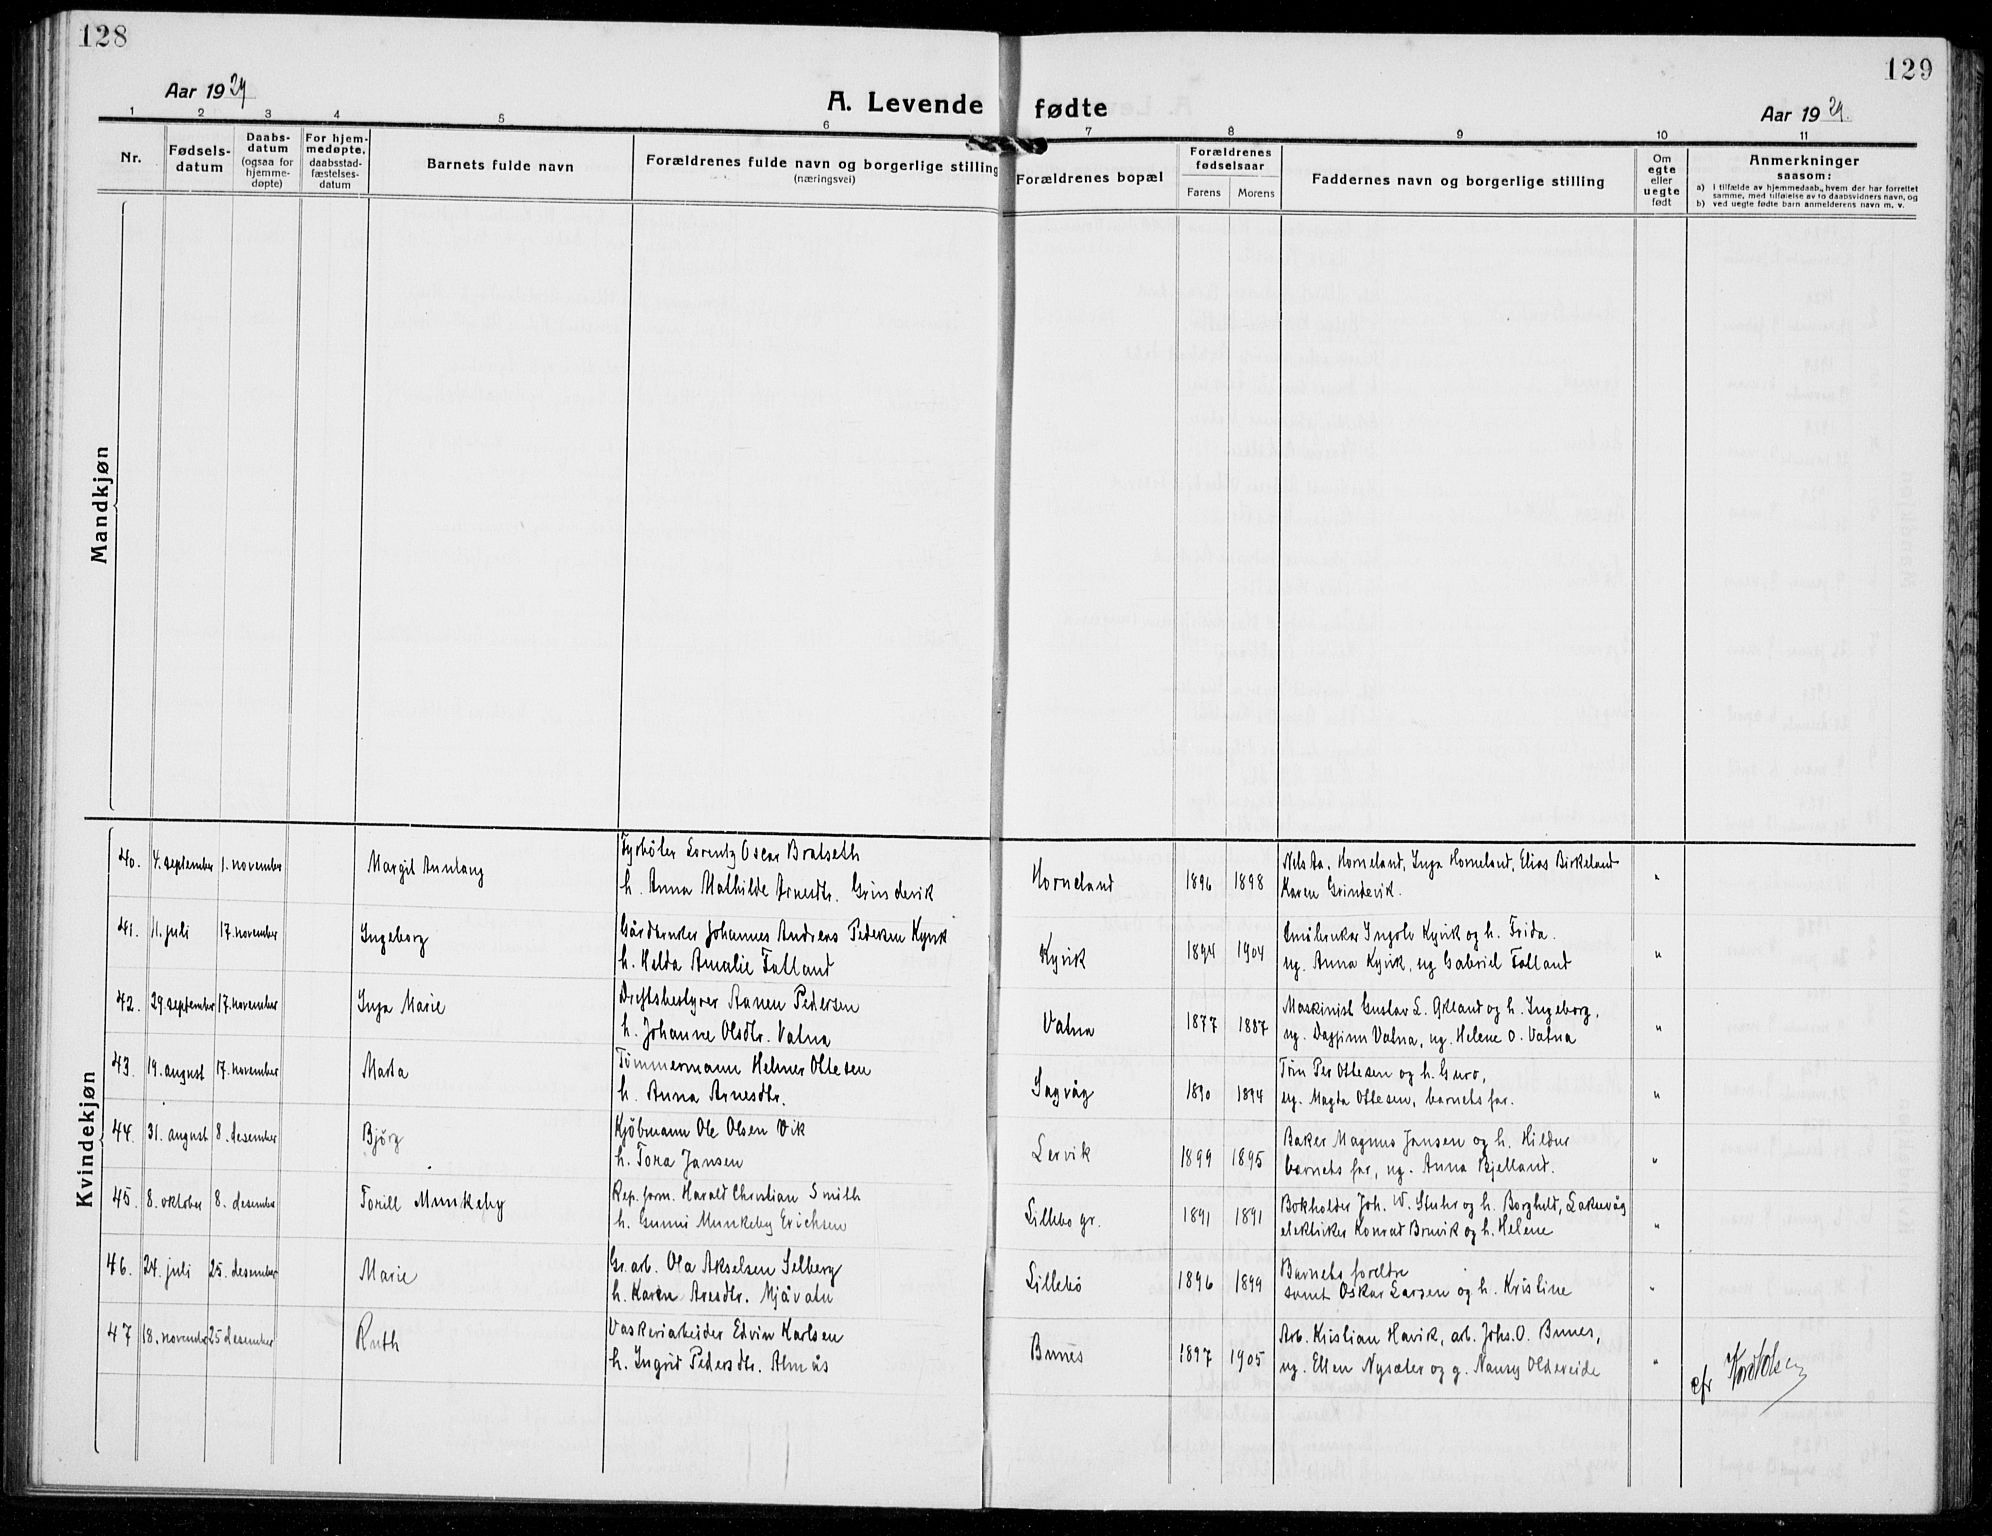 128
129
Aar 1929
A. Levende fødte
Aar 1929.
1 2 3 4 5 6 7 8 9 10 11
Nr.
Fødsels-
datum
Daabs-
datum
(ogsaa for
hjemme-
døpte)
For hjem-
medøpte,
daabsstad-
fæstelses-
datum
Barnets fulde navn
Forældrenes fulde navn og borgerlige stilling
(næringsvei)
Forældrenes bopæl
Forældrenes
fødselsaar
Farens Morens
Faddernes navn og borgerlige stilling
Om
egte
eller
uegte
født
Anmerkninger
saasom:
a) I tilfælde av hjemmedaab, hvem der har forrettet
samme, med tilføielse av to daabsvidners navn, og
b) ved uegte fødte barn anmelderens navn m. v.
Mandkjøn
Kvindekjøn
40. 4. september 1. november Margit Annlaug
Fyrbøter Lorentz Oscar Bratseth
h. Anna Mathilde Arnesdtr. Grindevik
Horneland 1896 1898
Nils Aa. Horneland, Inga Horneland, Elias Birkeland
Karen Grindevik. "
41. 11. juli 17. november Ingeborg
Gårdbruker Johannes Andreas Pedersen Kyvik
h. Helda Amalie Folland
Kyvik 1894 1904
Småbruker Ingolv Kyvik og h. Frida.
ug. Anna Kyvik, ug Gabriel Folland "
42. 29. september 17. november Inga Marie
Driftsbestyrer Aanen Pedersen
h. Johanne Olsdtr. Vatna
Vatna 1877 1887
Maskinist Gustav L. Økland og h. Ingeborg,
ug. Dagfinn Vatna, ug. Helene O. Vatna "
43. 19. august 17. november Marta
Tømmermann Helmer Ottesen
h. Anna Arnesdtr.
Sagvåg 1890 1894
Tøm Per Ottesen og h. Guro,
ug. Magda Ottesen, barnets far. "
44. 31. august 8. desember Bjørg
Kjøbmann Ole Olsen Vik
h. Tora Jansen
Lervik 1899 1895
Baker Magnus Jansen og h. Hildur
barnets far, ug. Anna Bjelland. "
45. 8. oktober 8. desember Torill Munkeby
Rep. form. Harald Christian Smith
h. Gunni Munkeby Erichsen
Lillebo gr. 1891 1891
Bokholder Joh. W. Stuhr og h. Borghild, Laksevåg
elektriker Konrad Bruvik og h. Helene "
46. 24. juli 25. desember Marie
Gr. arb. Ola Akselsen Selberg
h. Karen Aresdtr. Mjåvatn
Lillebö 1896 1899
Barnets foreldre
samt Oskar Larsen og h. Kristine "
47 18. november 25 desember Ruth
Vaskeriarbeider Edvin Karlsen
h. Ingrid Pedersdtr. Almås
Bunes 1897 1905
Arb. Kristian Havik, arb. Johs. O. Bunes,
ug. Ellen Nysæter og g. Nansy Oldereide "
efr